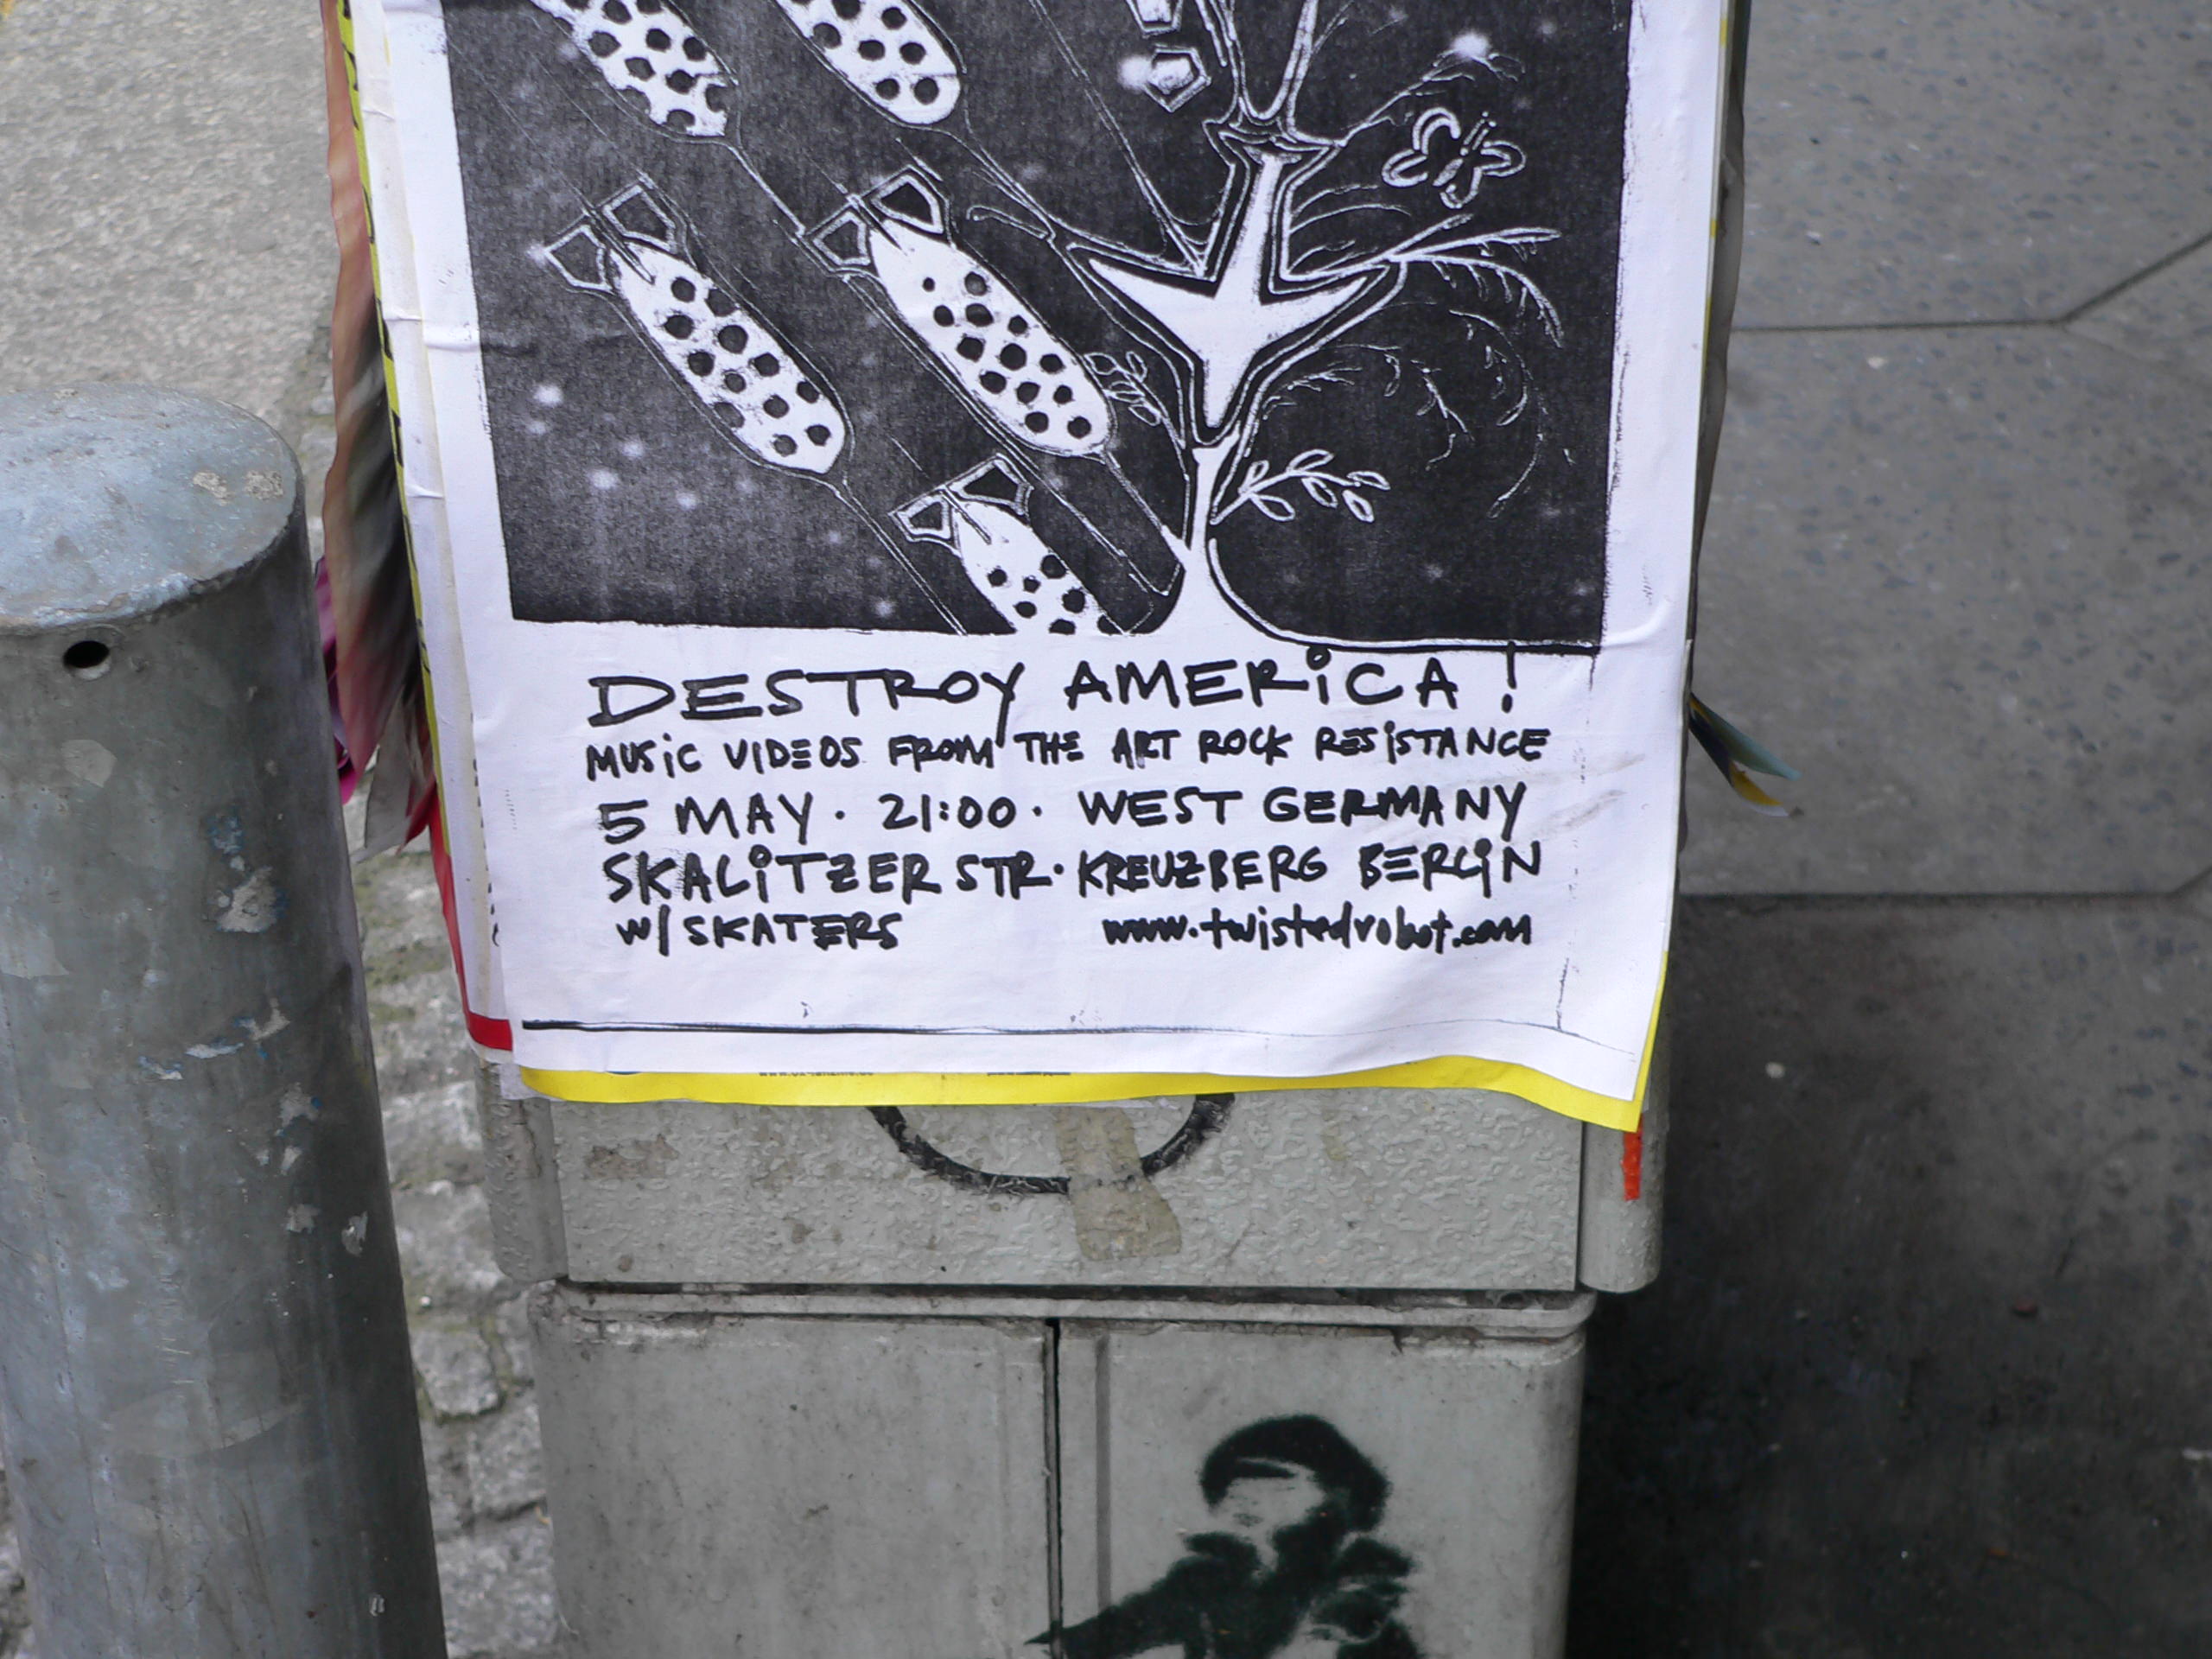 DESTROY AMERiCA!
MUSiC VIDEOS FROM THE ART ROCK RESiSTANCE
5 MAY · 21:00 · WEST GERMANY
SKALiTZER STR · KREUZBERG BERLiN
W/ SKATERS www.twistedrobot.com